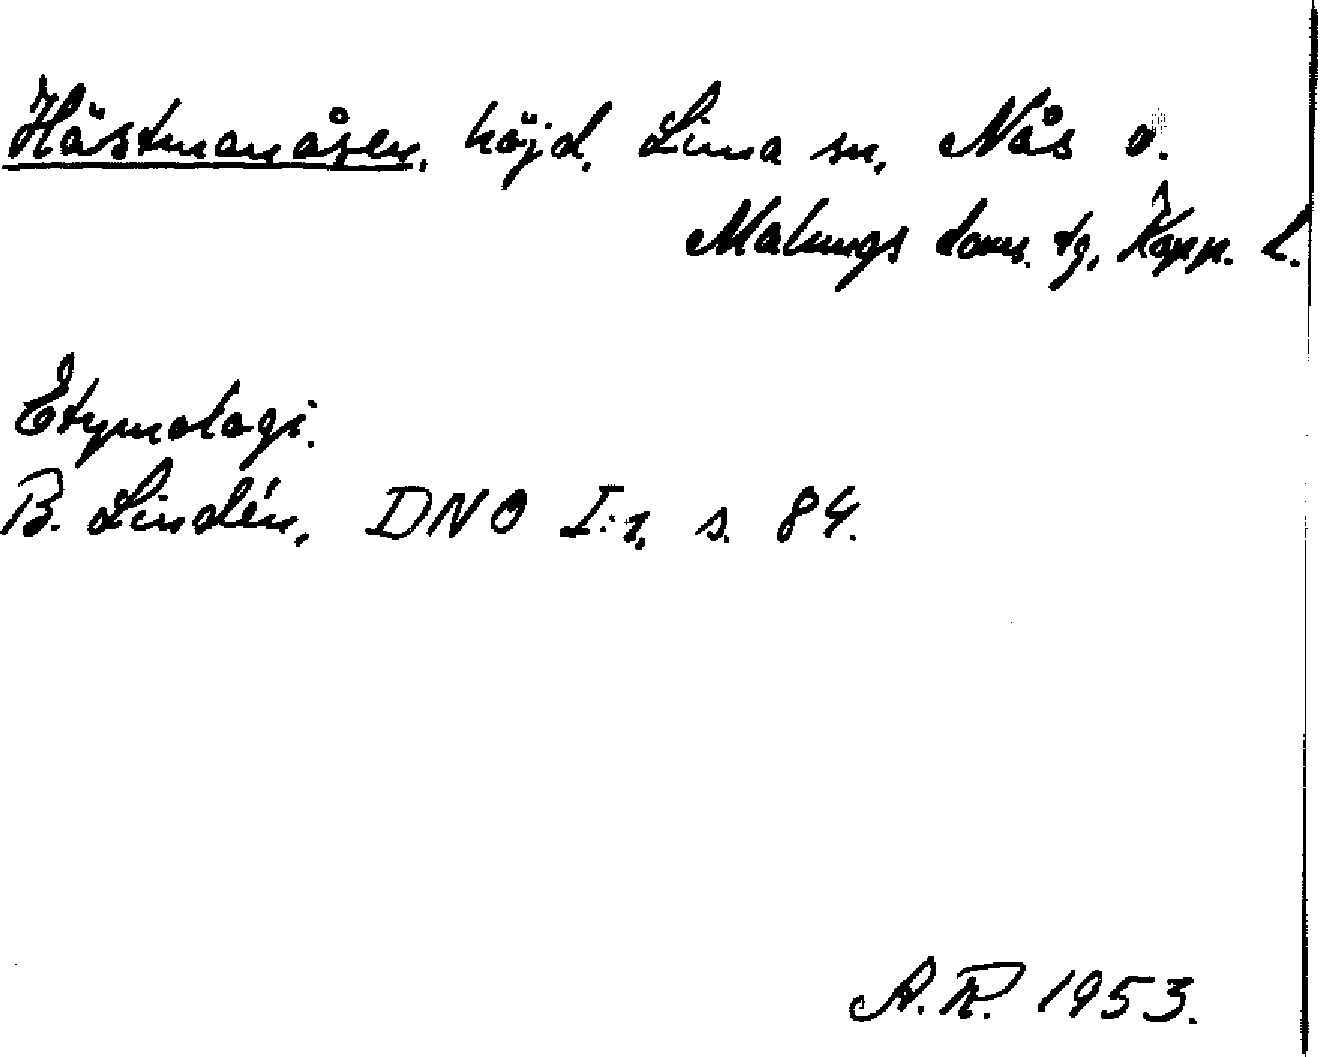 Hästmanåsen, höjd, Lima sn, Nås o.
Malungs doms. tg, Kopp. l.
Etymologi.
B. Lindén, DNO I:1, s. 84.
A.R. 1953.